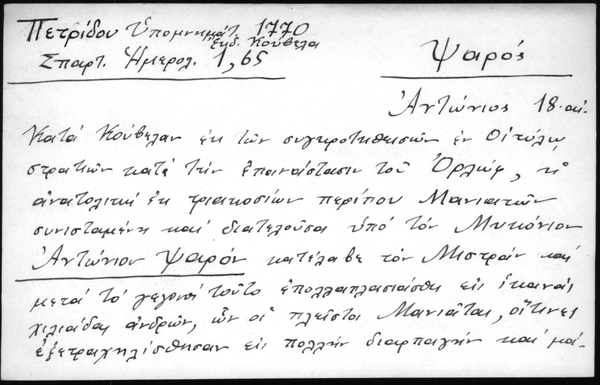 Πετρίδου Ὑπομνημάτ. 1770
Ἐκδ. Κούβελα
Σπαρτ. Ἡμερολ. 1,65
Ψαρός
Ἀντώνιος 18. αἰ.
Κατά Κούβελαν ἐκ τῶν συγκροτηθεισῶν ἐν Οἰτύλῳ
στρατιῶν κατά τήν ἐπανάστασιν τοῦ Ὀρλώφ, ἡ
ἀνατολική ἐκ τριακοσίων περίπου Μανιατῶν
συνισταμένη καί διατελοῦσα ὑπό τόν Μυκόνιον
Ἀντώνιον Ψαρόν κατέλαβε τόν Μιστρᾶν καί
μετά τό γεγονός τοῦτο ἐπολλαπλασιάσθη εἰς ἱκανάς
χιλιάδας ἀνδρῶν, ὧν οἱ πλεῖστοι Μανιᾶται, οἵτινες
ἐξετραχηλίσθησαν εἰς πολλήν διαρπαγήν καί μα-